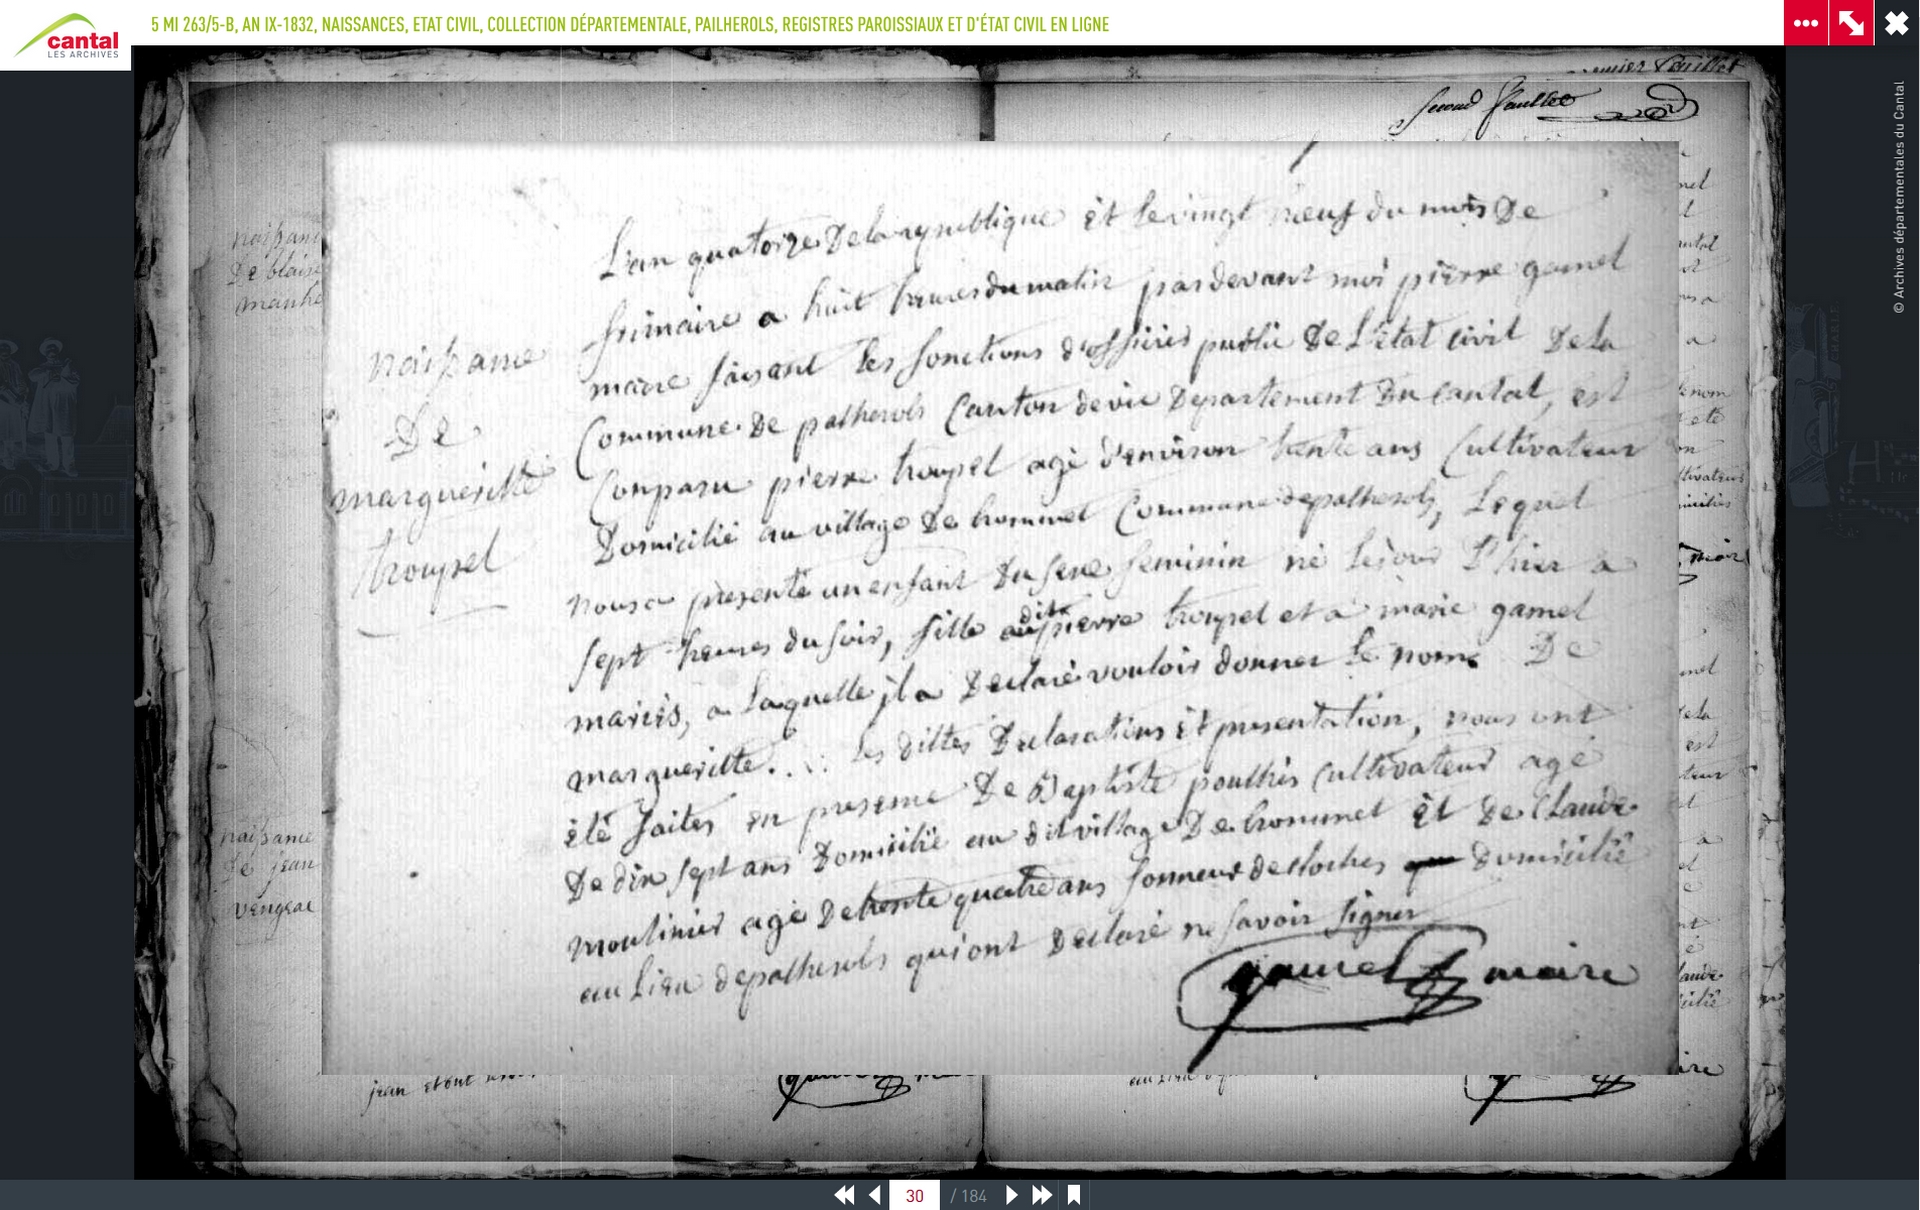 cantal
LES ARCHIVES
5 MI 263/5-B, AN IX-1832, NAISSANCES, ETAT CIVIL, COLLECTION DÉPARTEMENTALE, PAILHEROLS, REGISTRES PAROISSIAUX ET D'ÉTAT CIVIL EN LIGNE
© Archives départementales du Cantal
second feuillet
naissance
De
margueritte
troupel
L'an quatorze De la republique èt le vingt neuf du mois De
frimaire a huit heures du matin par devant moi pierre gamel
maire faisant les fonctions d'officier public De L'état civil De la
Commune De palherols Canton de vic Departement Du Cantal, est
Comparu pierre troupel agé d'environ trente ans Cultivateur
Domicilié au village De hommet Commune de palherols, Lequel
nous a presenté un enfant Du sexe feminin né le jour D'hier a
sept heures du soir, fille audit pierre troupel et a marie gamel
mariés, a Laquelle jl a Declaré vouloir donner Le nom De
margueritte... Les dittes Declarations èt presentation, nous ont
été faites en presence De Baptiste poulhès Cultivateur agé
De dix sept ans Domicilié au dit village De hommet èt De Claude
moulinier agé De trente quatre ans sonneur de cloches Domicilié
au Lieu de palherols qui ont Declaré ne savoir signer
gamel maire
naissance
De blaise
naissance
De jean
vengeac
30 / 184